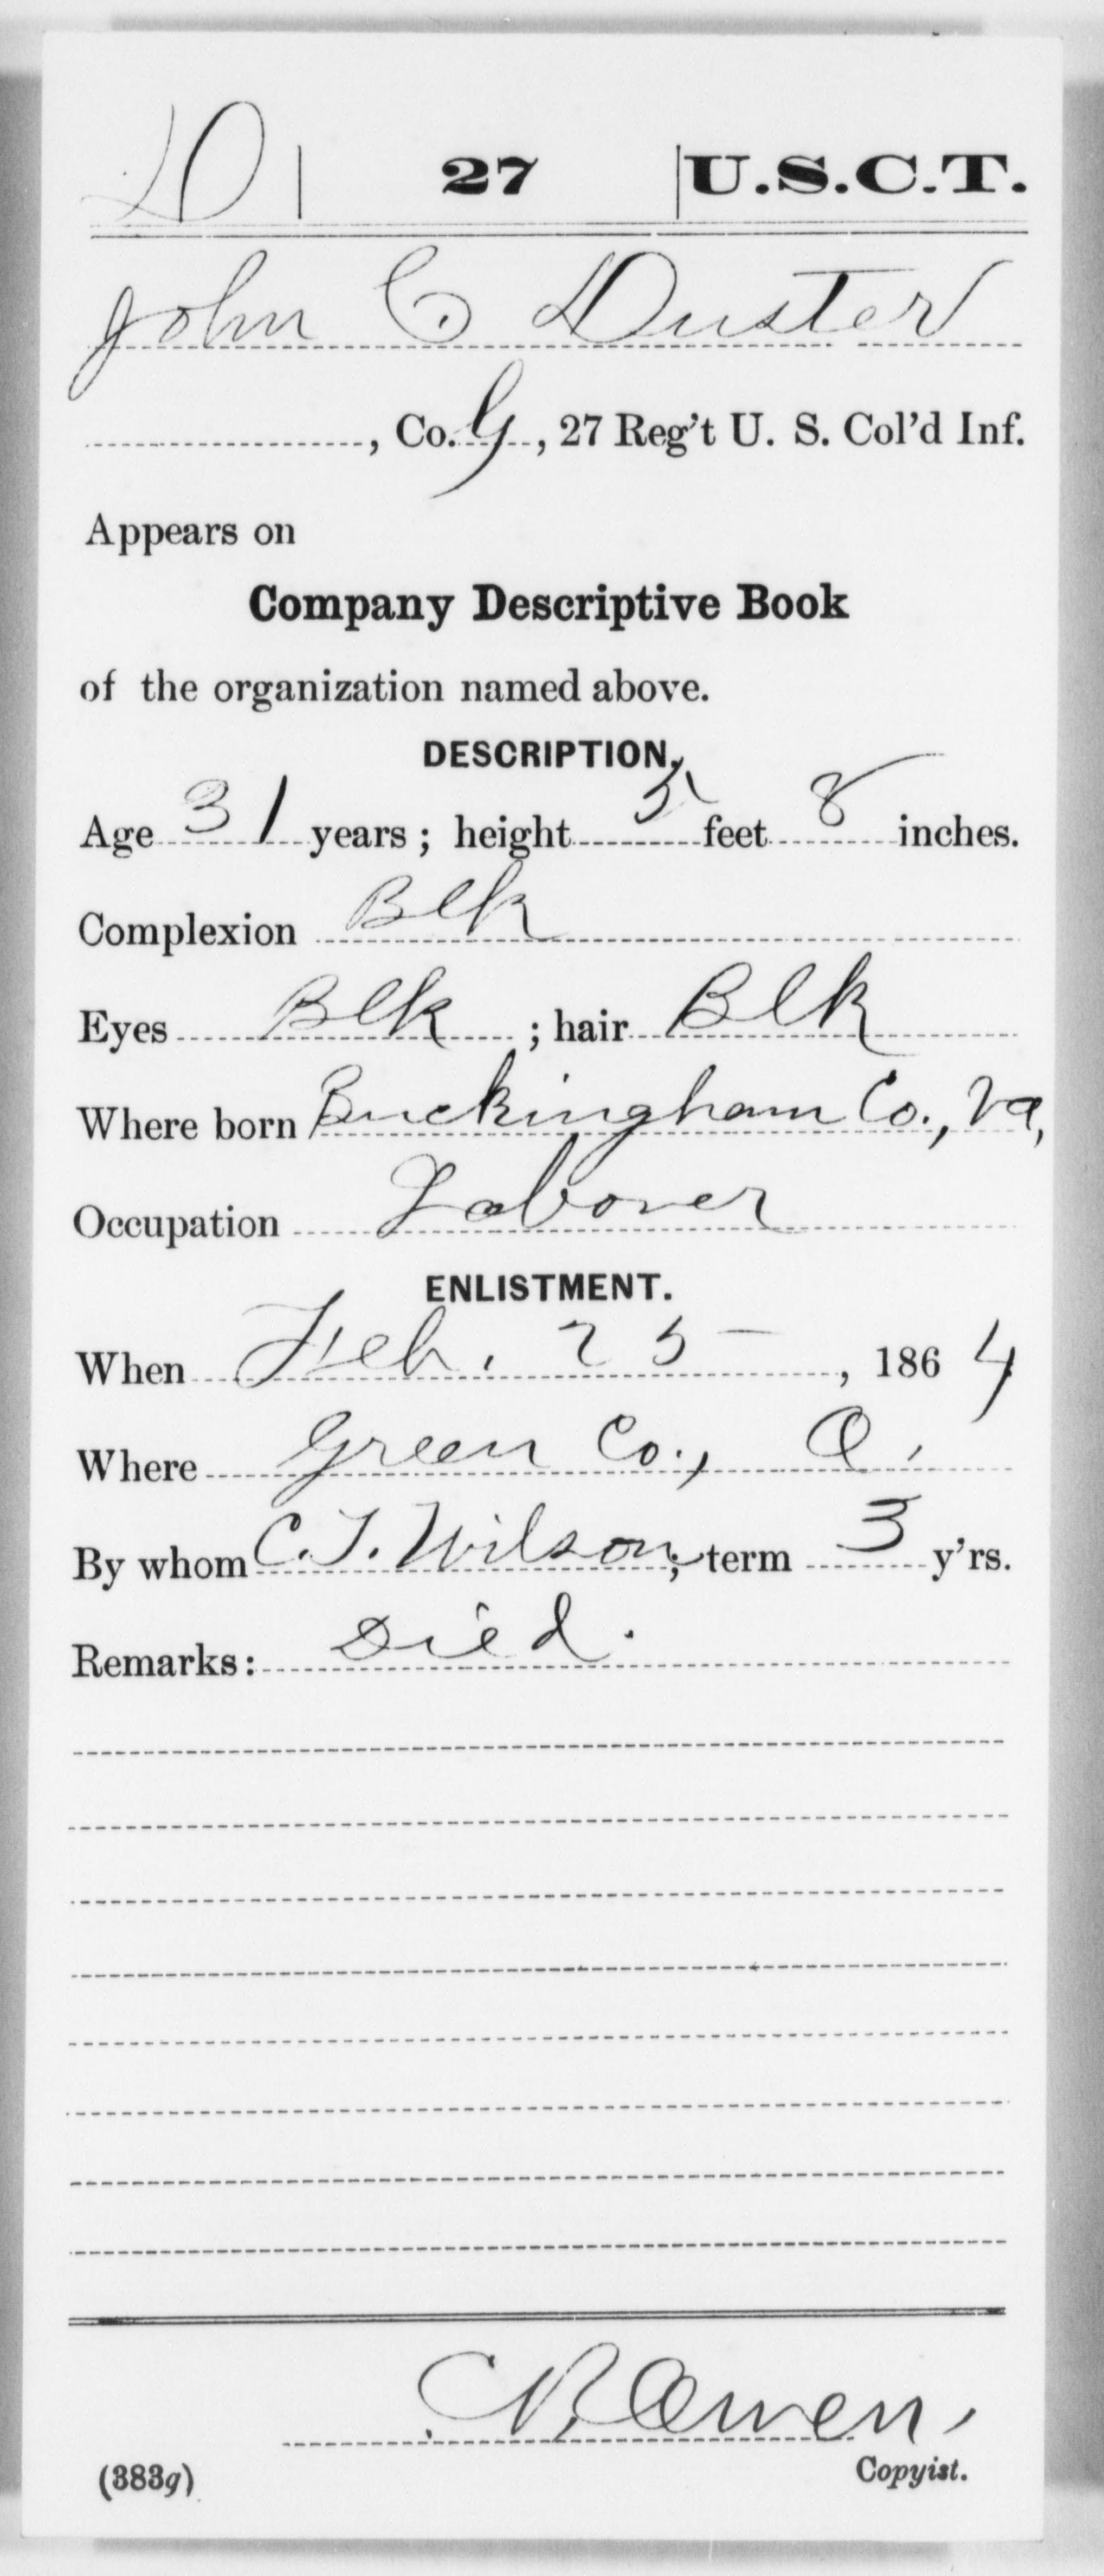 D | 27 | U.S.C.T.
John C Duster
, Co. G, 27 Reg't U. S. Col'd Inf.
Appears on
Company Descriptive Book
of the organization named above.
DESCRIPTION.
Age 31 years; height 5 feet 8 inches.
Complexion Blk
Eyes Blk ; hair Blk
Where born Buckingham Co., Va,
Occupation Laborer
ENLISTMENT.
When Feb. 25 , 1864
Where Green Co., O.
By whom C. T. Wilson; term 3 y'rs.
Remarks: Died.
Owen,
(383g) Copyist.